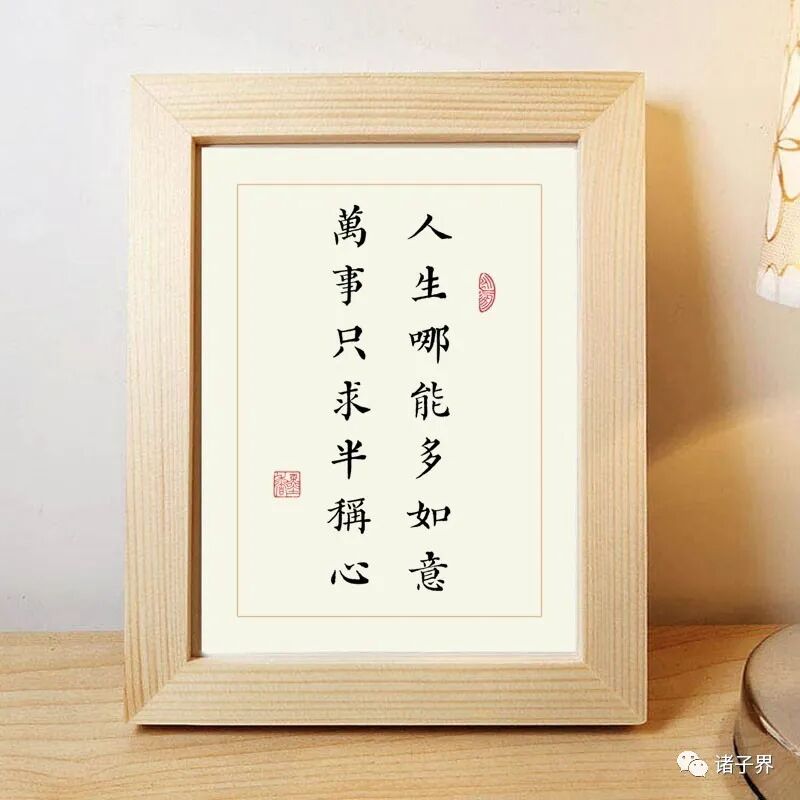 人生哪能多如意
萬事只求半稱心
诸子界